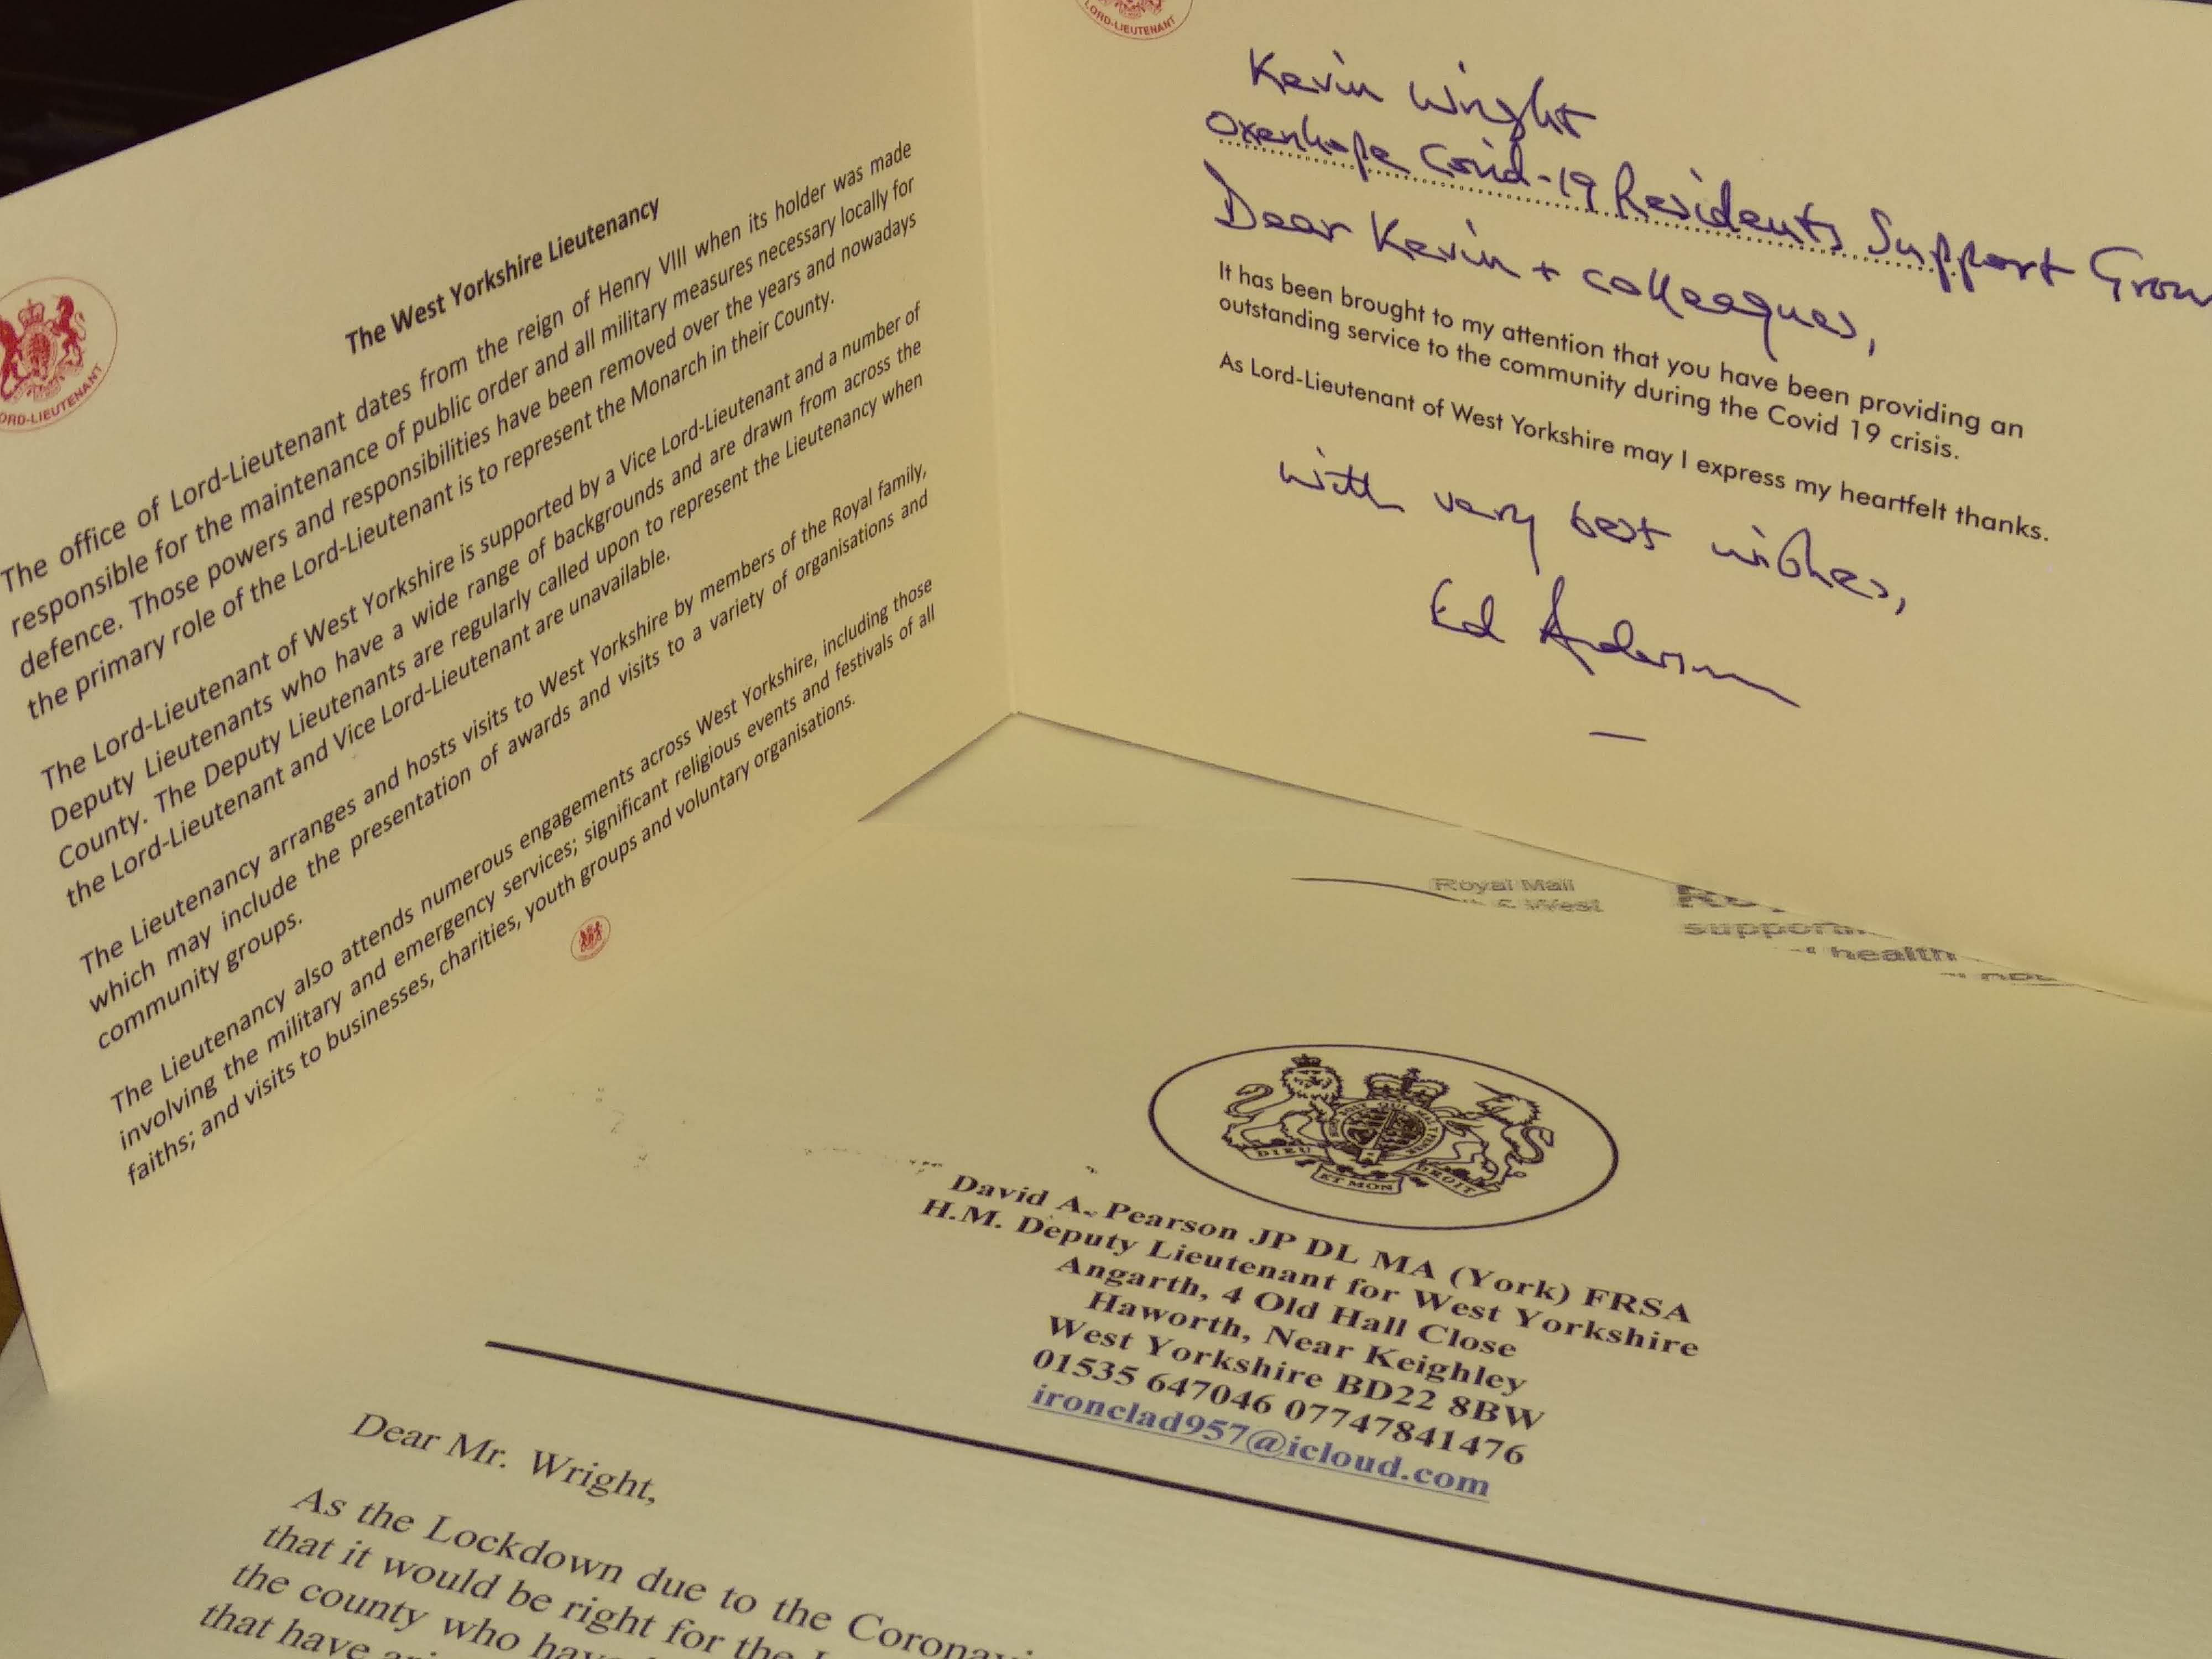 LORD-LIEUTENANT
The West Yorkshire Lieutenancy
The office of Lord-Lieutenant dates from the reign of Henry VIII when its holder was made
responsible for the maintenance of public order and all military measures necessary locally for
defence. Those powers and responsibilities have been removed over the years and nowadays
the primary role of the Lord-Lieutenant is to represent the Monarch in their County.
The Lord-Lieutenant of West Yorkshire is supported by a Vice Lord-Lieutenant and a number of
Deputy Lieutenants who have a wide range of backgrounds and are drawn from across the
County. The Deputy Lieutenants are regularly called upon to represent the Lieutenancy when
the Lord-Lieutenant and Vice Lord-Lieutenant are unavailable.
The Lieutenancy arranges and hosts visits to West Yorkshire by members of the Royal family,
which may include the presentation of awards and visits to a variety of organisations and
community groups.
The Lieutenancy also attends numerous engagements across West Yorkshire, including those
involving the military and emergency services; significant religious events and festivals of all
faiths; and visits to businesses, charities, youth groups and voluntary organisations.
LORD-LIEUTENANT
Kevin Wright
Oxenhope Covid-19 Residents Support Grou
Dear Kevin + colleagues,
It has been brought to my attention that you have been providing an
outstanding service to the community during the Covid 19 crisis.
As Lord-Lieutenant of West Yorkshire may I express my heartfelt thanks.
With very best wishes,
Ed Anderson
Royal Mail
West
health
DIEU ET MON DROIT
David A. Pearson JP DL MA (York) FRSA
H.M. Deputy Lieutenant for West Yorkshire
Angarth, 4 Old Hall Close
Haworth, Near Keighley
West Yorkshire BD22 8BW
01535 647046 07747841476
ironclad957@icloud.com
Dear Mr. Wright,
As the Lockdown due to the Coronavi
that it would be right for the L
the county who have
that have